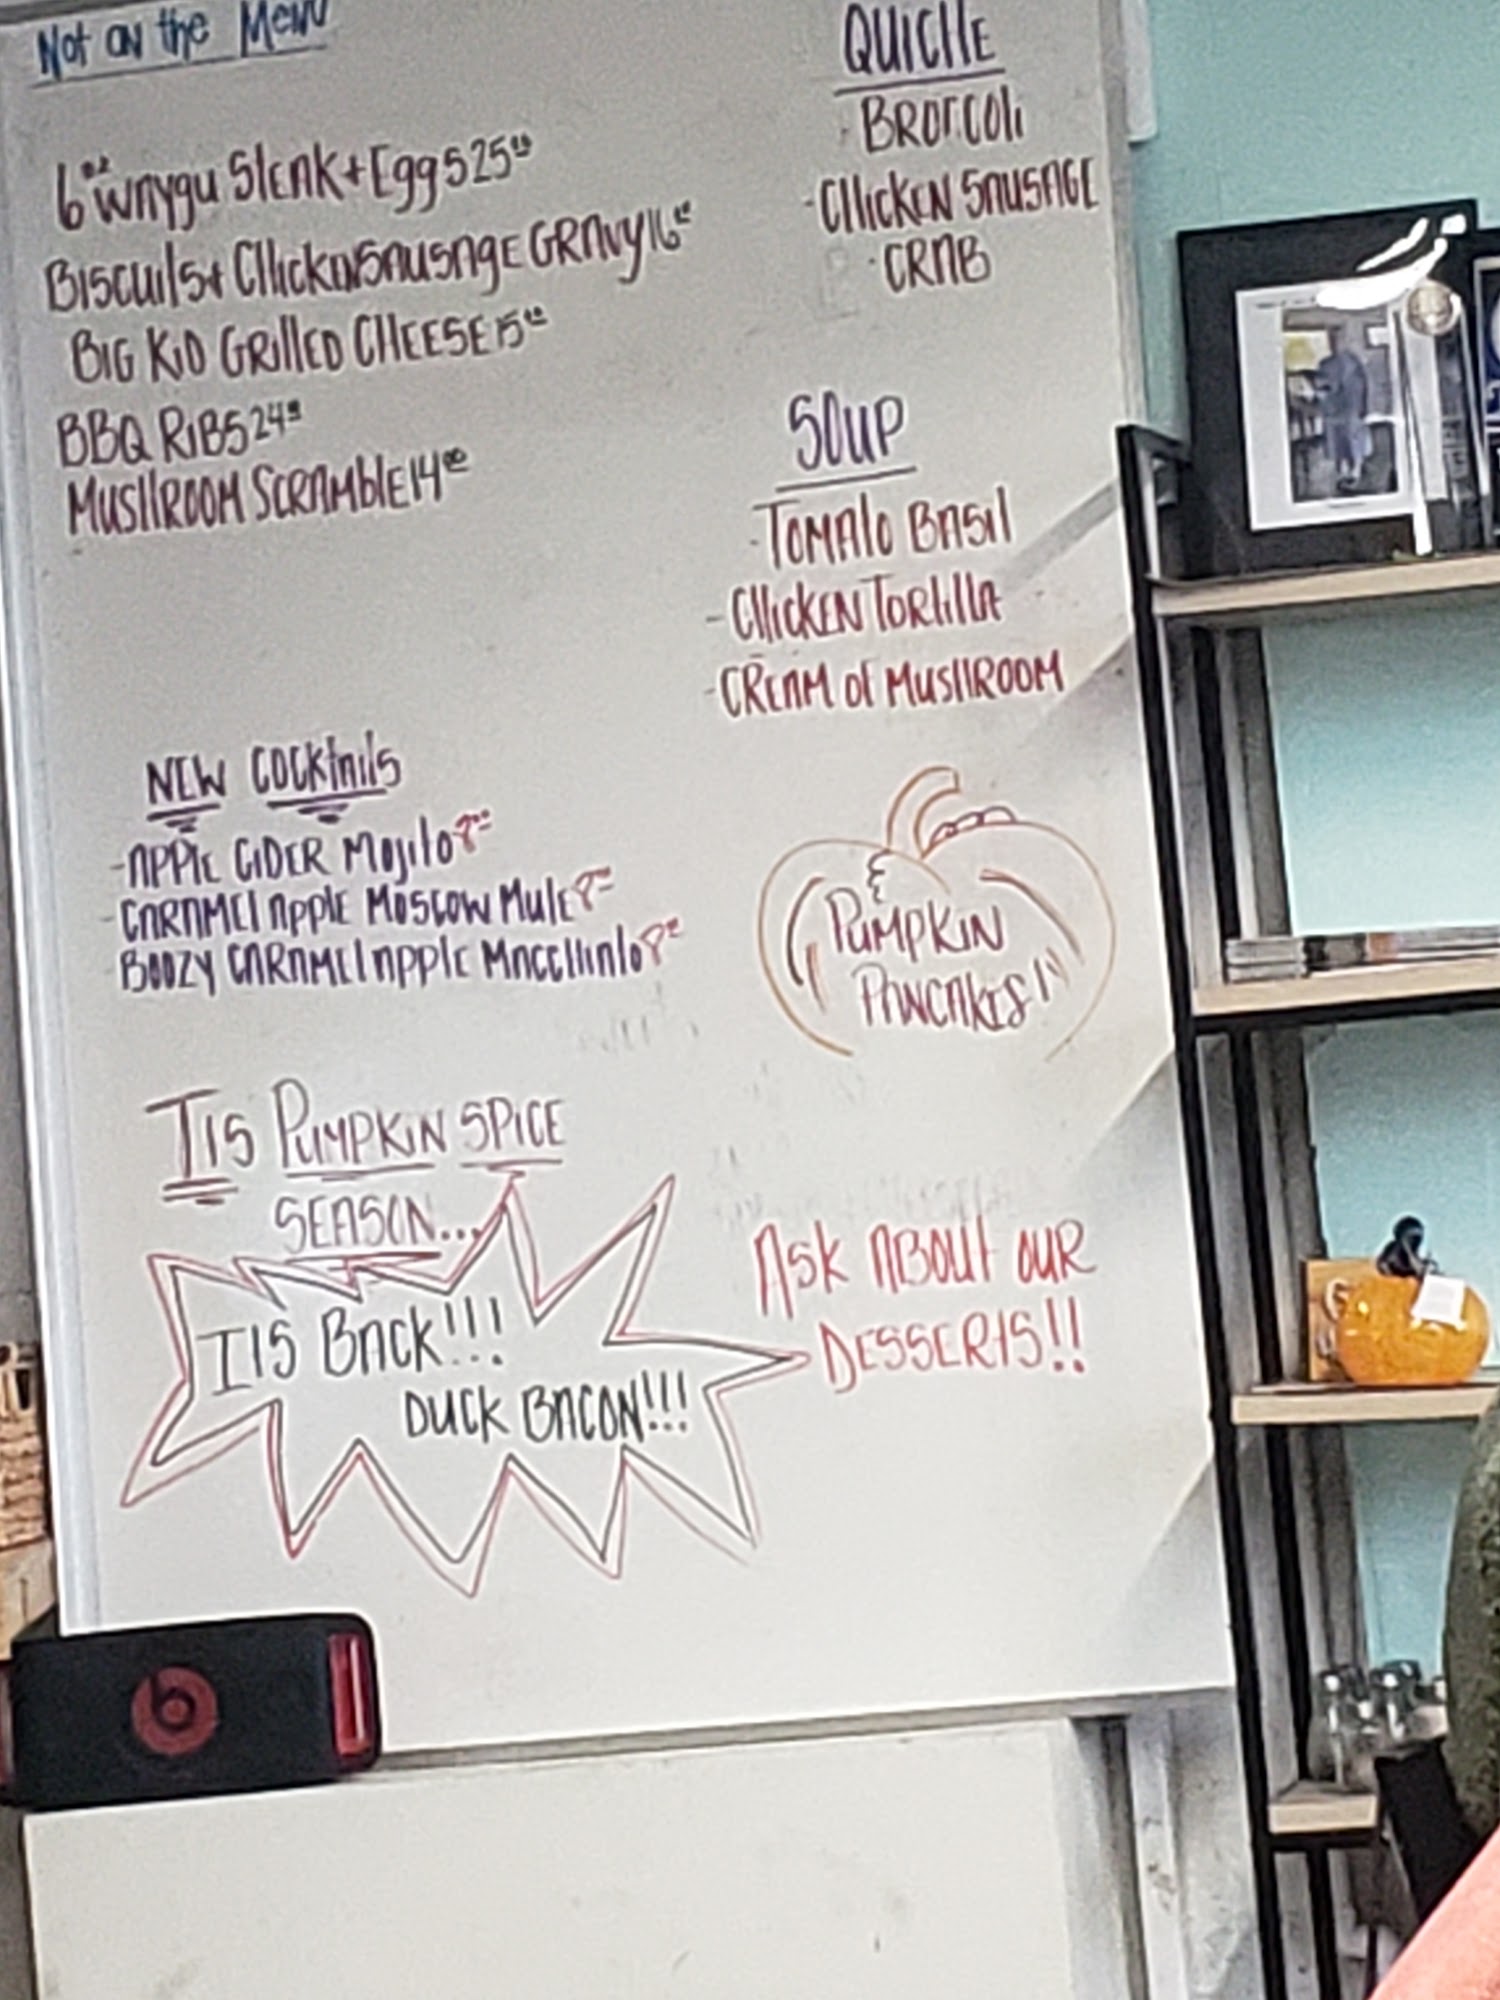 Not on the Menu
6oz Wagyu Steak + Eggs 25
Biscuits + Chicken Sausage Gravy 16
Big Kid Grilled Cheese 15
BBQ Ribs 24
Mushroom Scramble 14 00
QUICHE
Broccoli
- Chicken Sausage
- Crab
SOUP
- Tomato Basil
- Chicken Tortilla
- Cream of Mushroom
NEW COCKTAILS
- Apple Cider Mojito
- Caramel Apple Moscow Mule
- Boozy Caramel Apple Macchiato
Pumpkin
Pancakes
Tis Pumpkin Spice
Season...
Its Back!!!
Duck Bacon!!!
Ask About our
Desserts!!
b